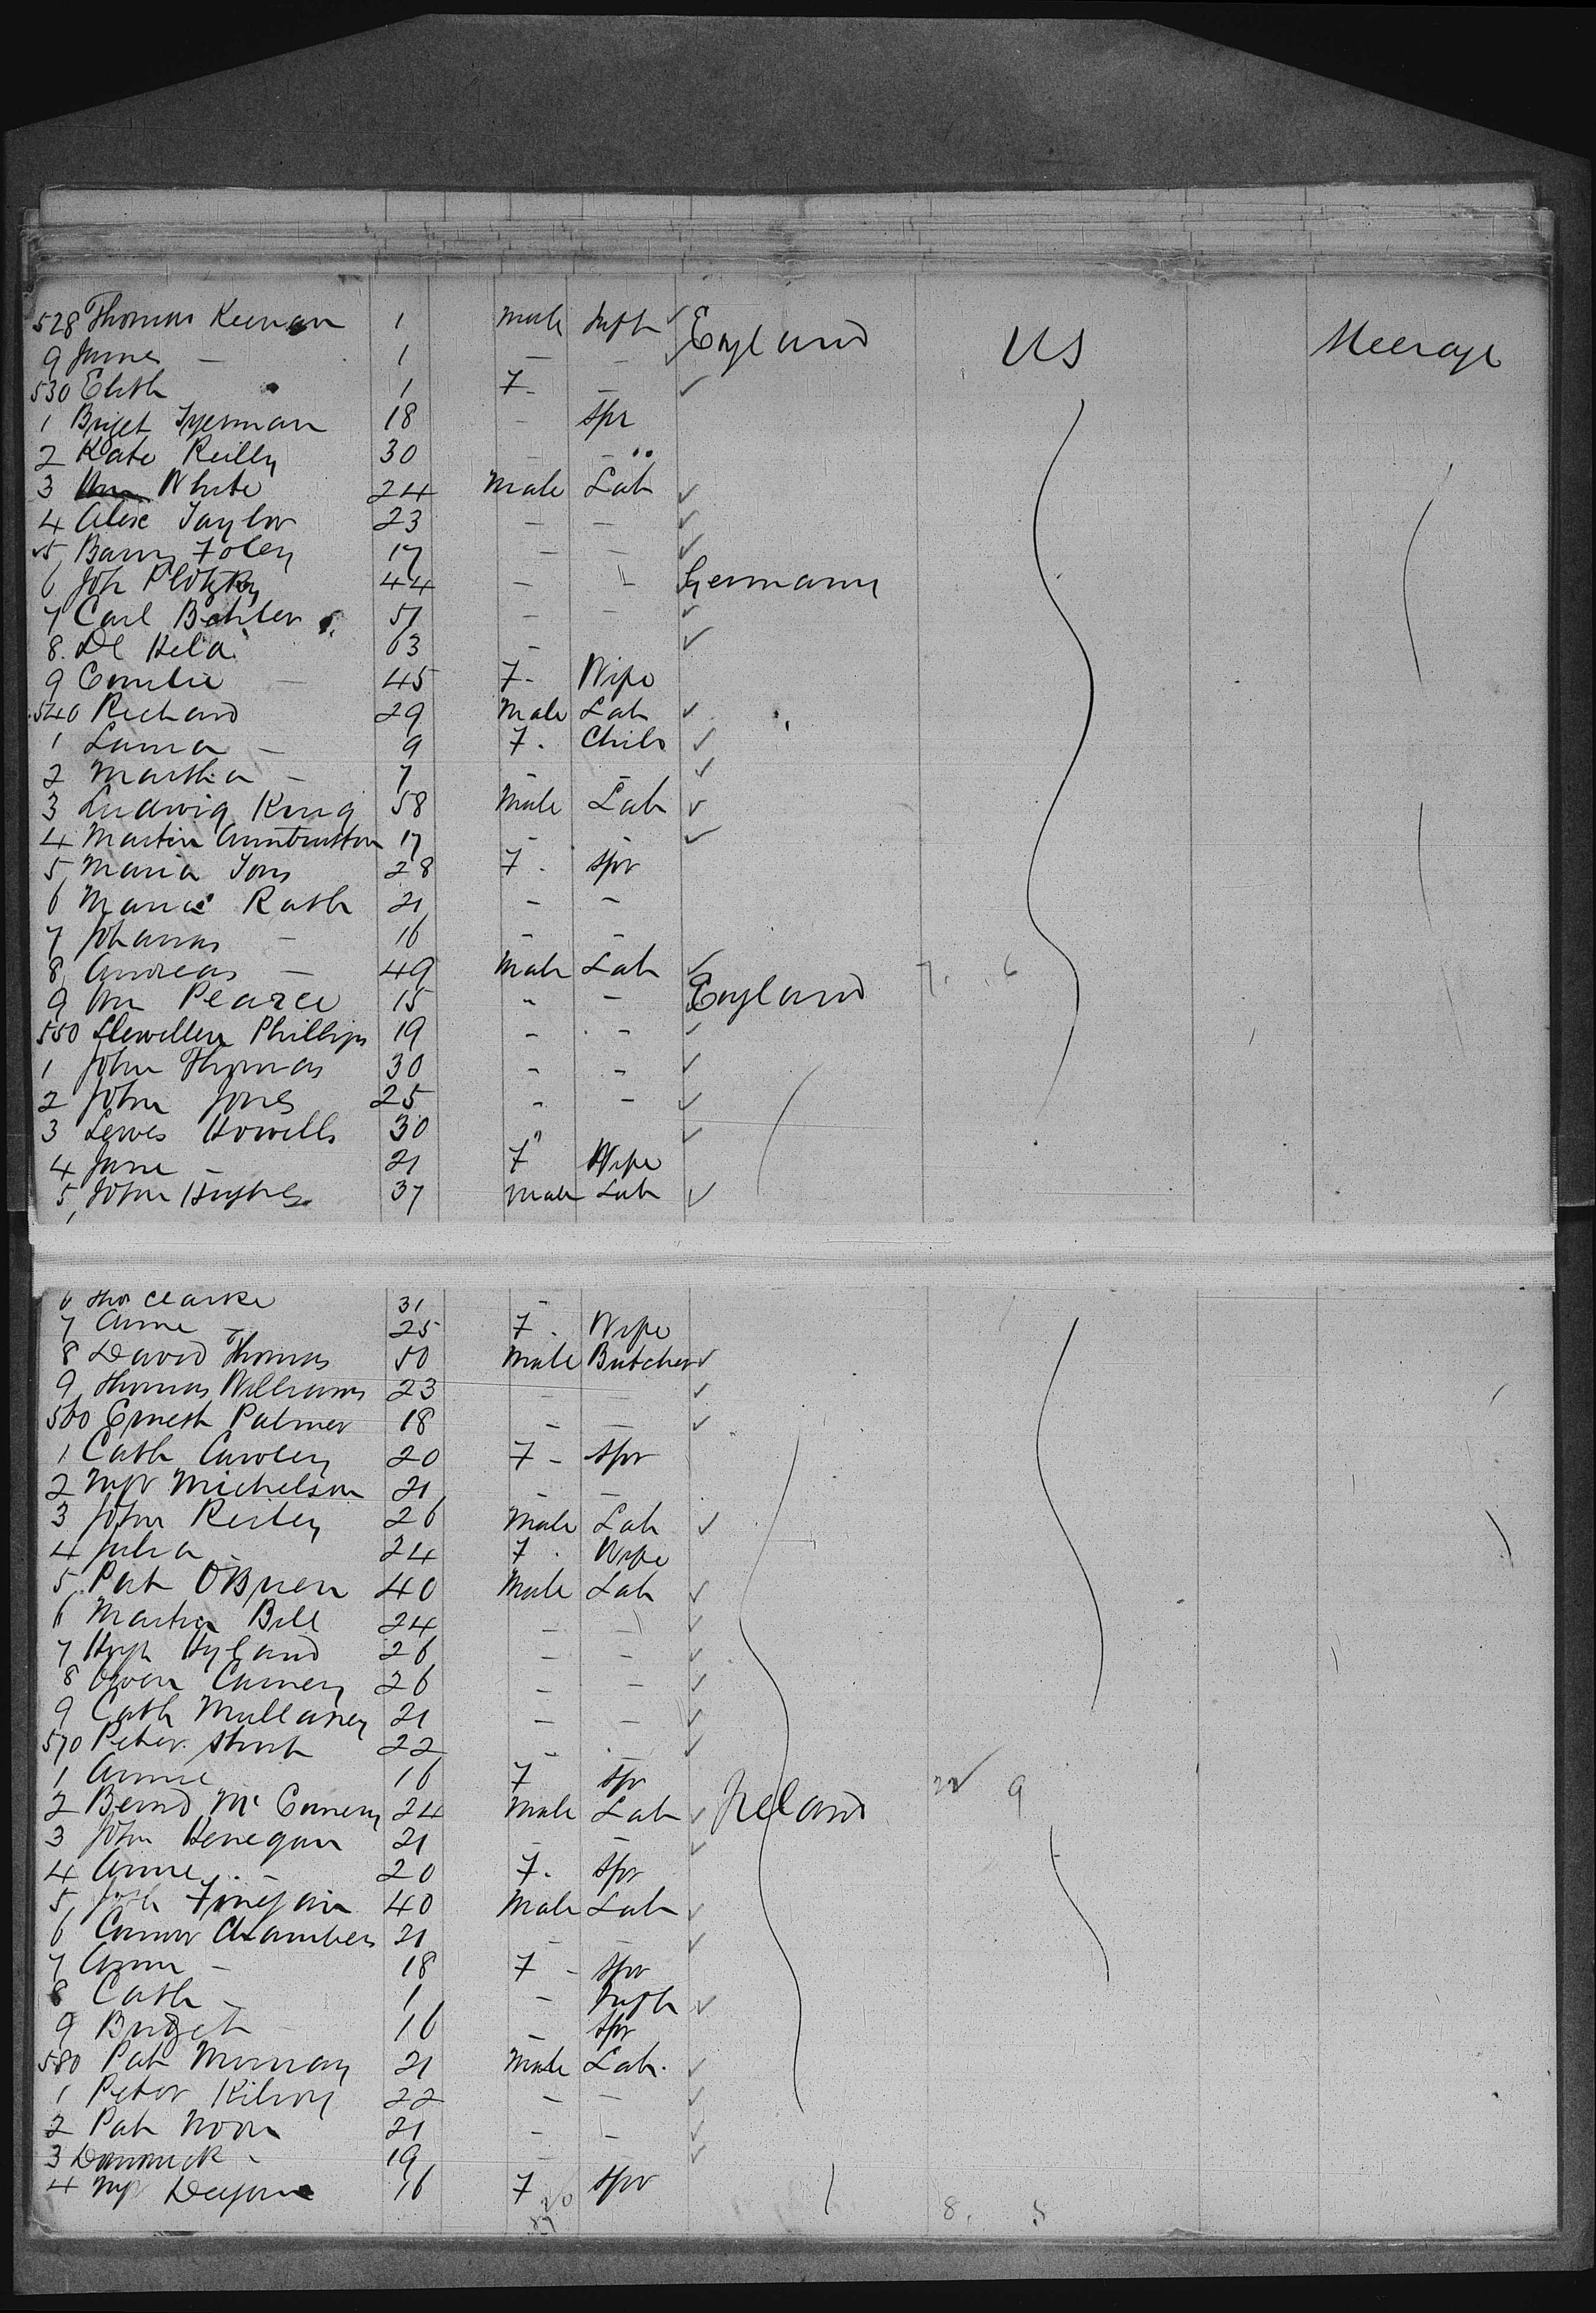 528 Thomas Keenan 1 Male Inft ✓ England US Steerage
9 James — 1 — — ✓
530 Elisth 1 F. — ✓
1 Briget Tyernan 18 — Spr
2 Kate Reilly 30 — "
3 Wm White 24 Male Lab ✓
4 Alex Taylor 23 — — ✓
5 Barny Foley 17 — — ✓
6 Joh Plotzky 44 — — Germany
7 Carl Behler 51 — — ✓
8. 63 — ✓
9 Emilie — 45 F. Wife
540 Richard 29 Male Lab ✓
1 Laura — 9 F. Child ✓
2 Martha — 7 — — ✓
3 Ludwig King 58 Male Lab ✓
4 Martin 17 — — ✓
5 Maria 28 F. Spr
6 Marie Rath 21 — —
7 Johanns — 16 — —
8 Andreas — 49 Male Lab ✓
9 Wm Pearce 15 " — England 7. 6
550 Llewellen Phillips 19 — — ✓
1 John Thomas 30 — — ✓
2 John Jones 25 — — ✓
3 Lewes Howells 30 " ✓
4 Jane — 21 F Wife
5 John Hughes 37 Male Lab ✓
6 Thos Clarke 31 —
7 Anne — 25 F. Wife
8 David Thomas 50 Male Butcher ✓
9 Thomas Williams 23 — — ✓
560 Ernest Palmer 18 — — ✓
1 Cath Cawley 20 F — Spr
2 Mgt Michelson 21 — —
3 John Reiley 26 Male Lab ✓
4 Julia — 24 F. Wife
5 Pat OBrien 40 Male Lab ✓
6 Martin Bell 24 — — ✓
7 Hugh Hyland 26 — — ✓
8 Owen 26 — — ✓
9 Cath Mullaney 21 — — ✓
570 Peter 22 — — ✓
1 Annie 16 F Spr
2 Bernd 24 Male Lab ✓ Ireland 9
3 John Henegan 21 — — ✓
4 Anne — 20 F. Spr
5 40 Male Lab ✓
6 Connor Chambers 21 — — ✓
7 Anne — 18 F — Spr
8 Cath — 1 — Inft ✓
9 Bridget — 16 — Spr
580 Pat Murray 21 Male Lab. ✓
1 Peter Kilroy 22 — — ✓
2 Pat Noon 21 — — ✓
3 Dominick — 19 — ✓
4 Mgt 16 F Spr 8.